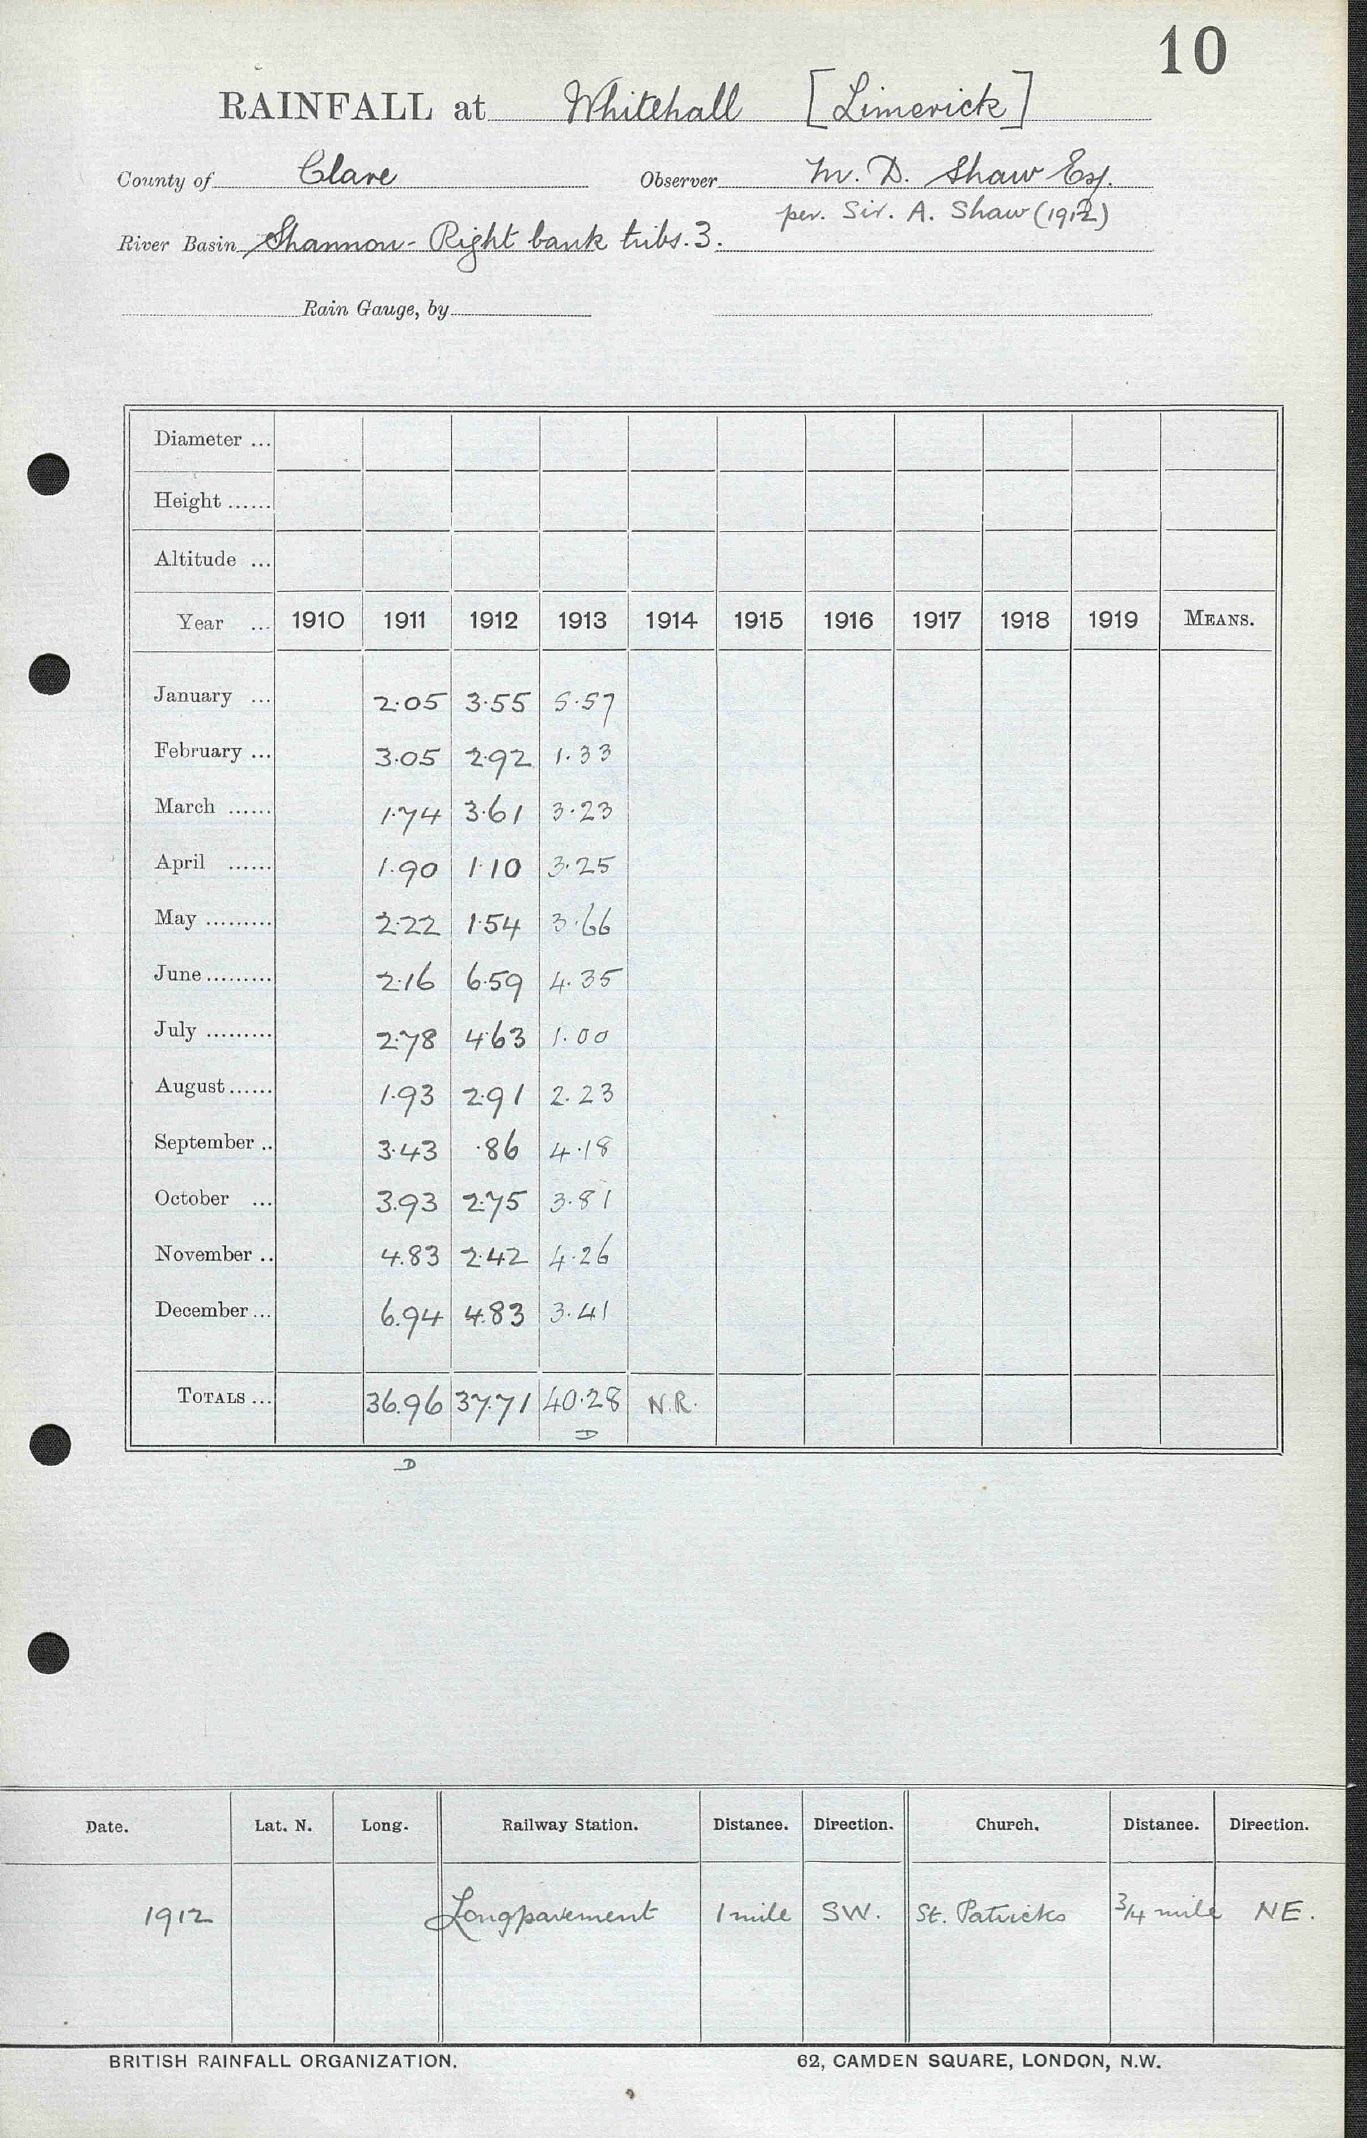 10
RAINFALL at Whitehall [Limerick]
County of Clare Observer M. D. Shaw Esq.
per. Sir. A. Shaw (1912)
River Basin Shannon - Right bank tribs. 3.
Rain Gauge, by
Diameter ...
Height ......
Altitude ...
Year ... 1910 1911 1912 1913 1914 1915 1916 1917 1918 1919 MEANS.
January ... 2.05 3.55 5.57
February ... 3.05 2.92 1.33
March ...... 1.74 3.61 3.23
April ...... 1.90 1.10 3.25
May ......... 2.22 1.54 3.66
June ......... 2.16 6.59 4.35
July ......... 2.78 4.63 1.00
August ...... 1.93 2.91 2.23
September .. 3.43 .86 4.18
October ... 3.93 2.75 3.81
November .. 4.83 2.42 4.26
December ... 6.94 4.83 3.41
TOTALS ... 36.96 37.71 40.28 N.R.
D
D
Date. Lat. N. Long. Railway Station. Distance. Direction. Church. Distance. Direction.
1912 Longpavement 1 mile SW. St. Patricks 3/4 mile NE.
BRITISH RAINFALL ORGANIZATION. 62, CAMDEN SQUARE, LONDON, N.W.